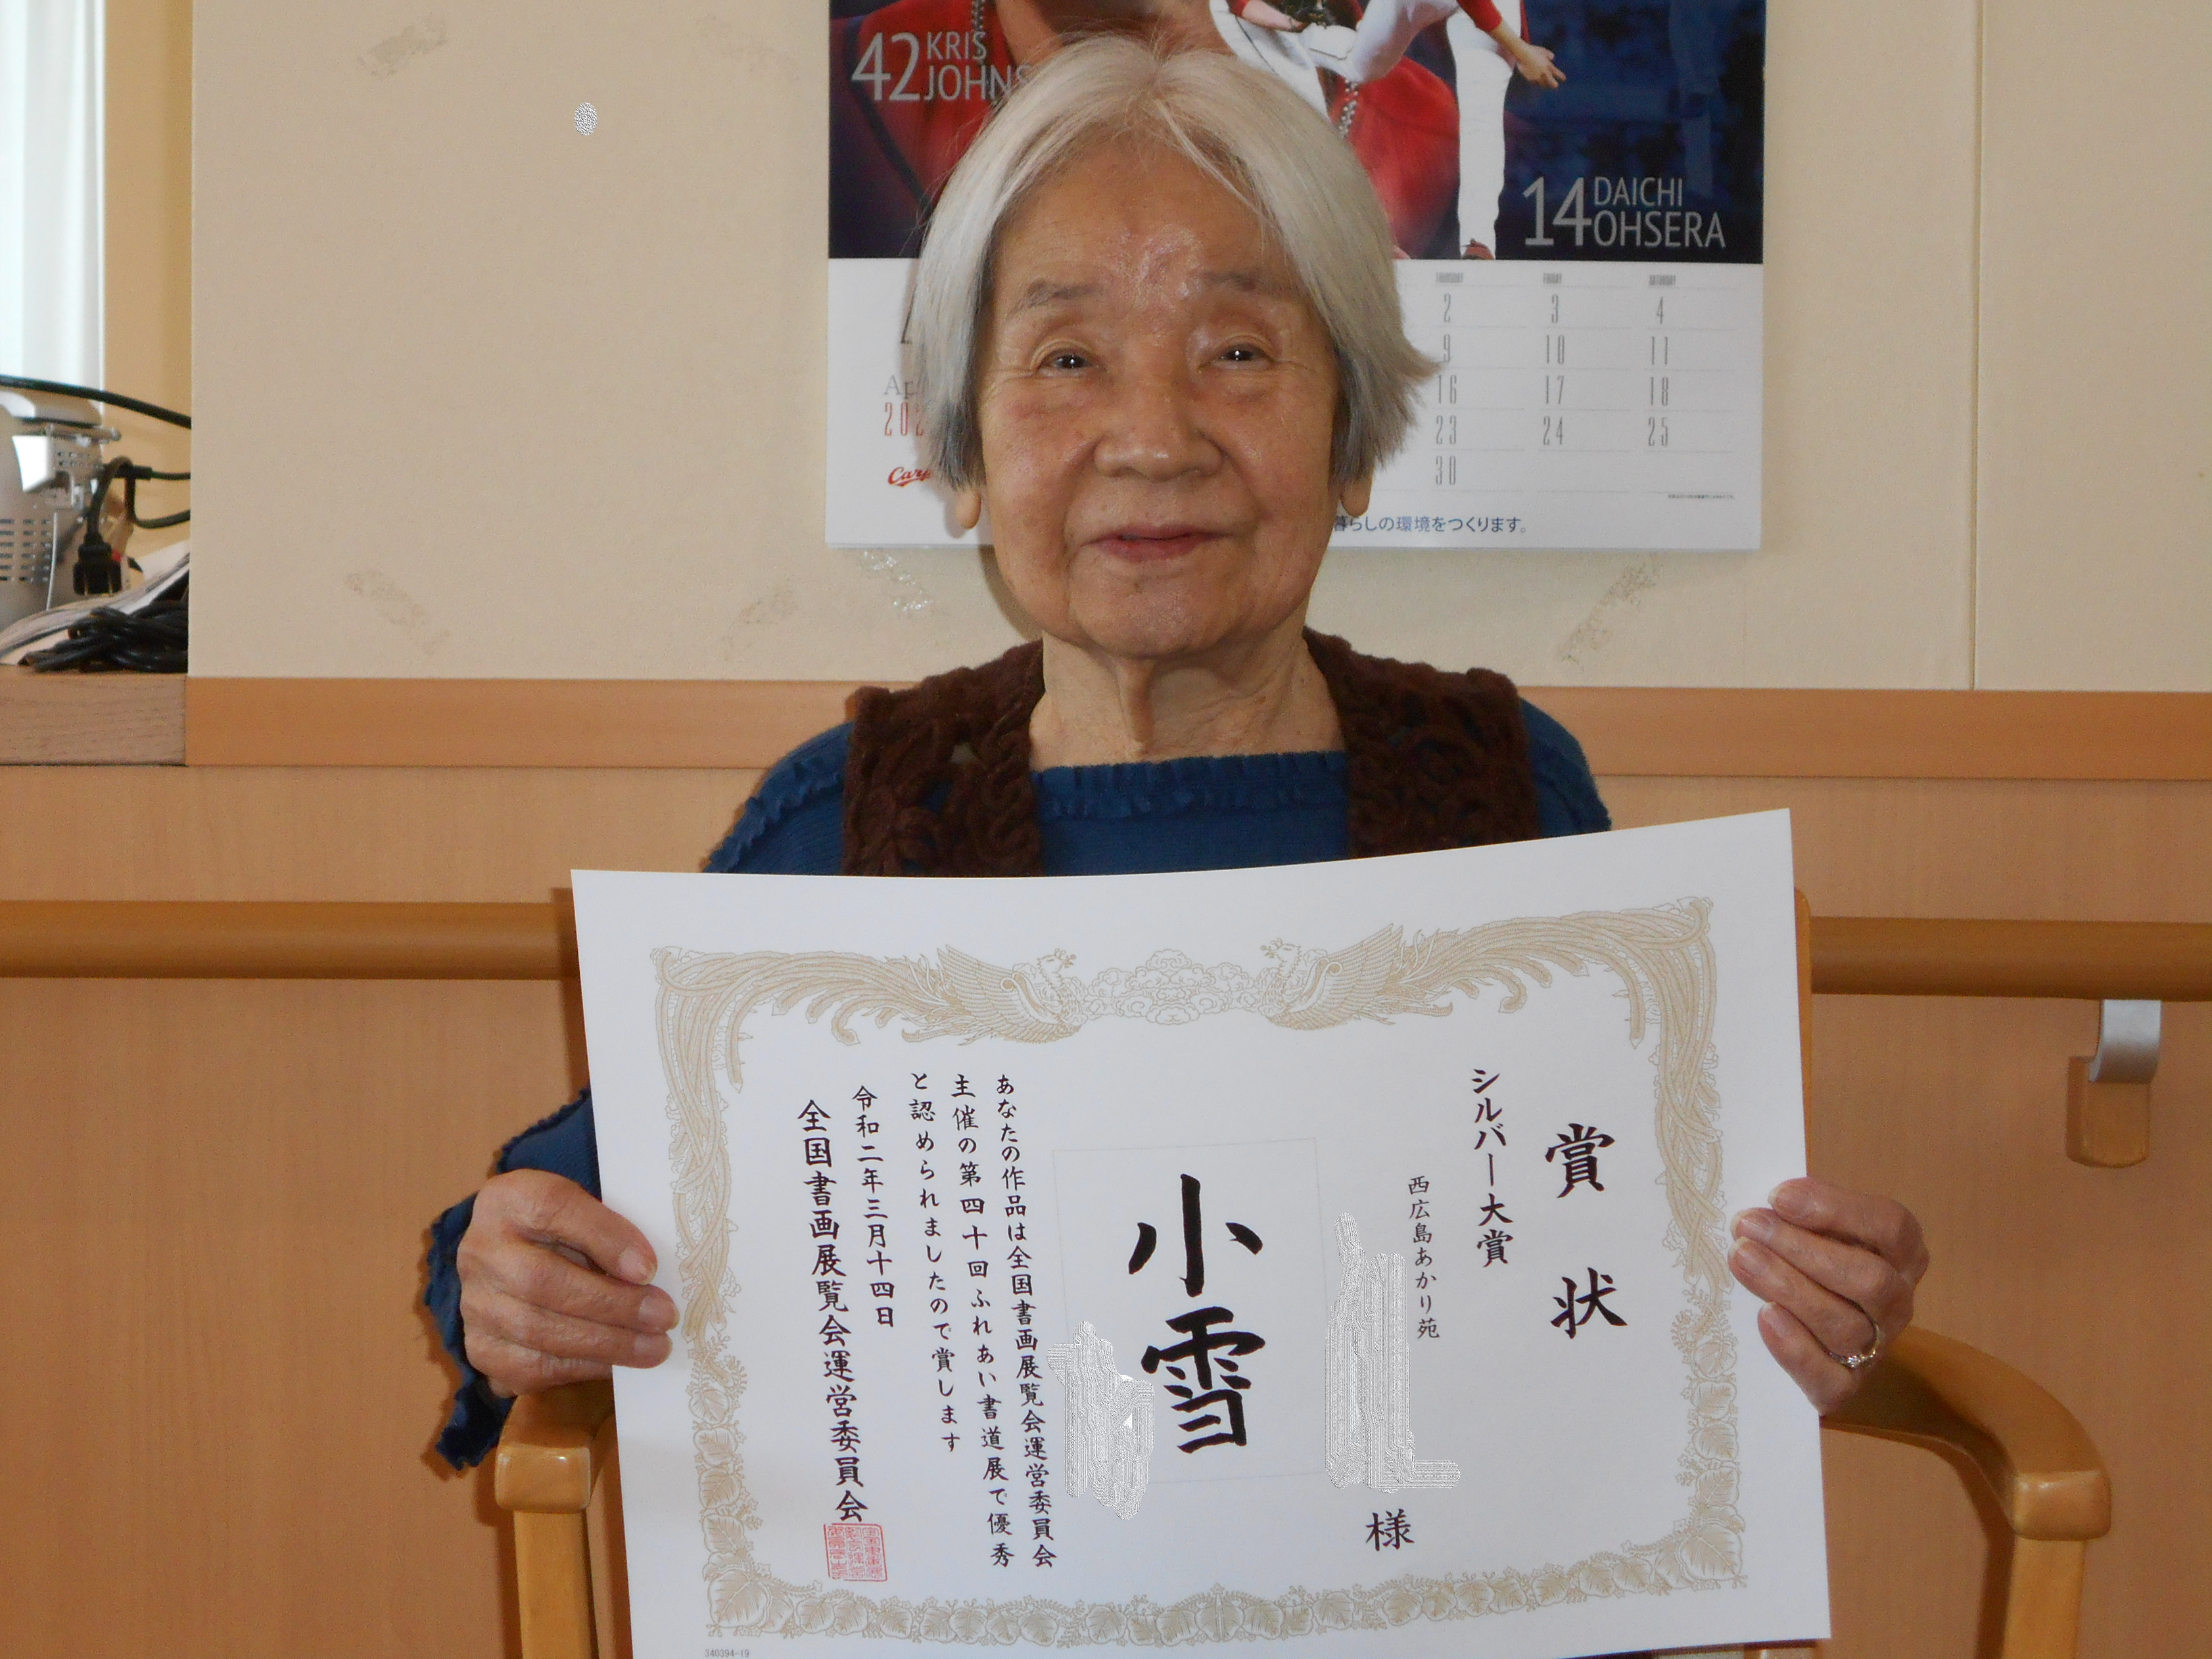 42 KRIS
JOHNS
14 DAICHI
OHSERA
THURSDAY FRIDAY SATURDAY
2 3 4
9 10 11
16 17 18
23 24 25
30
Carp
暮らしの環境をつくります。
賞状
シルバー大賞
西広島あかり苑
様
小雪
あなたの作品は全国書画展覧会運営委員会
主催の第四十回ふれあい書道展で優秀
と認められましたので賞します
令和二年三月十四日
全国書画展覧会運営委員会
340394-19